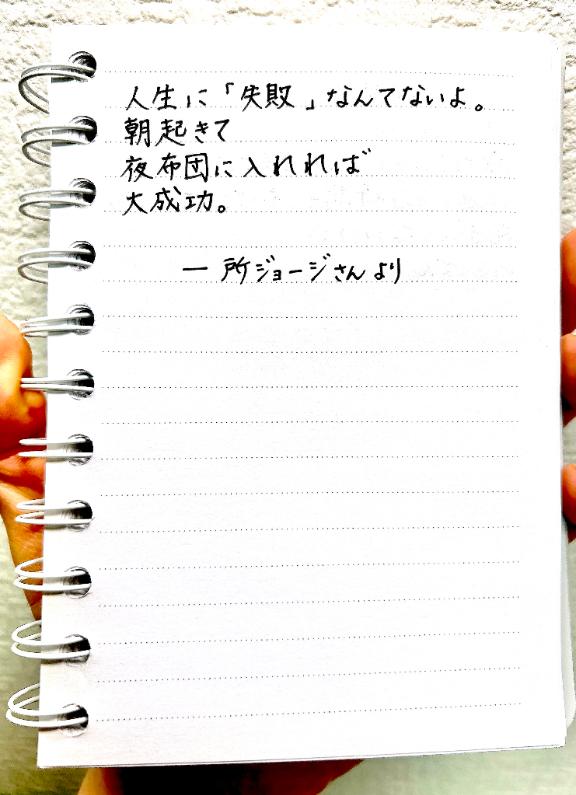 人生に「失敗」なんてないよ。
朝起きて
夜布団に入れれば
大成功。
ー 所ジョージさんより